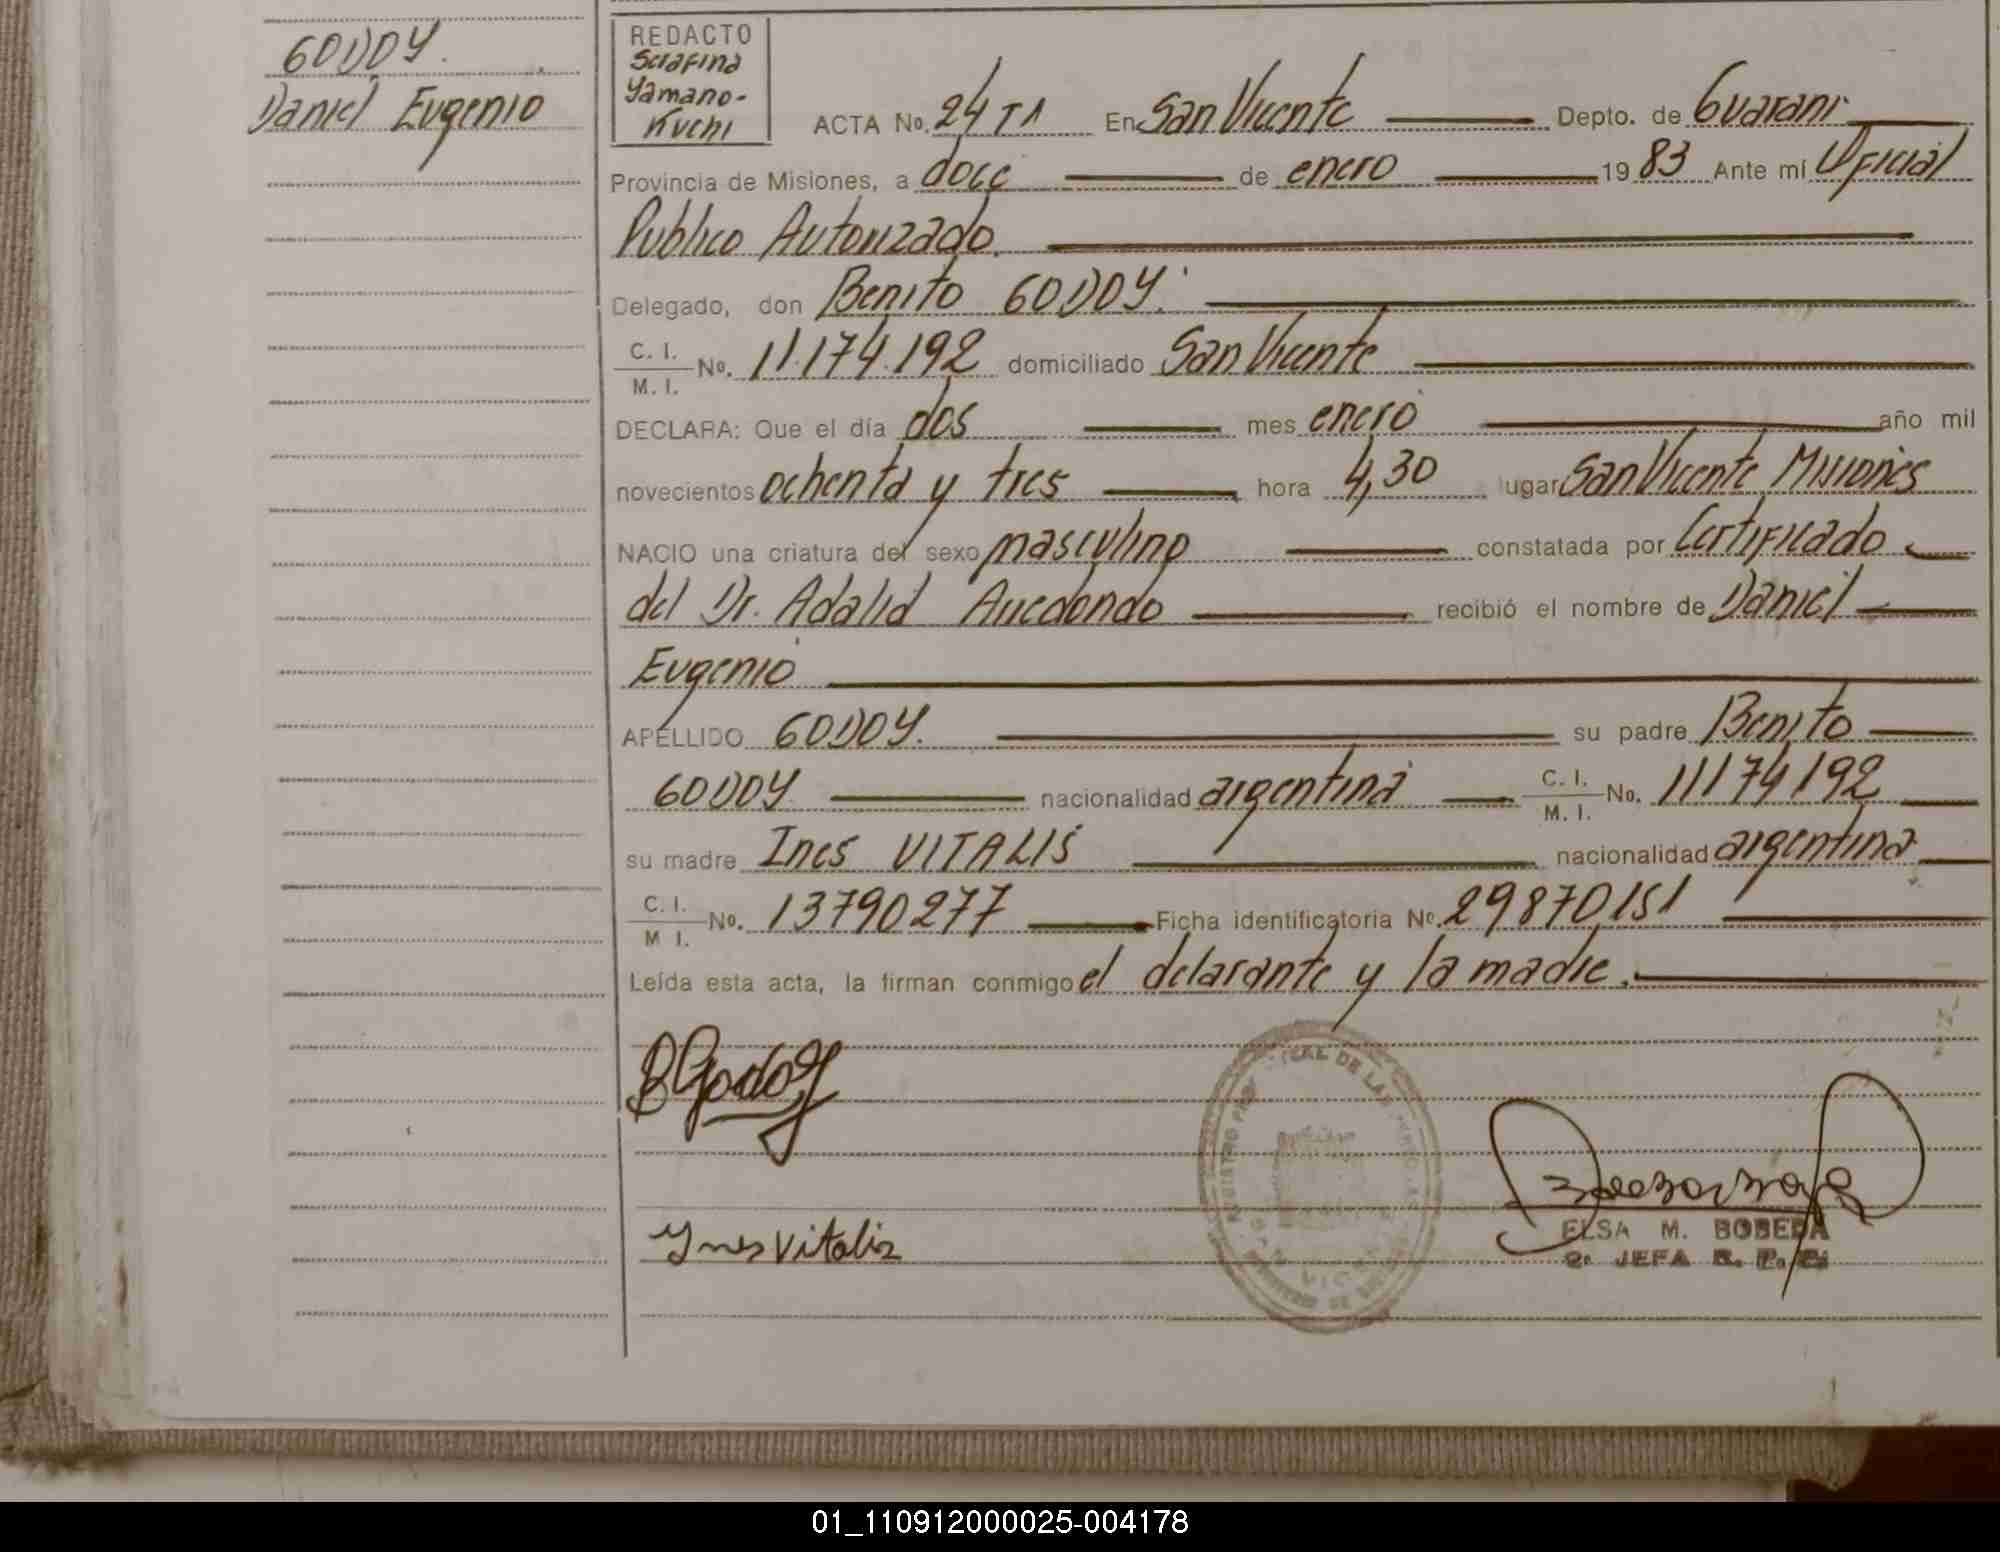 GODOY.
Daniel Eugenio
REDACTO
Serafina
Yamano-
Kuchi
ACTA No. 24 T1 En San Vicente Depto. de Guarani
Provincia de Misiones, a doce de enero 1983 Ante mí Oficial
Publico Autorizado.
Delegado, don Benito GODOY.
C. I.
M. I. No. 11.174.192 domiciliado San Vicente
DECLARA: Que el día dos mes enero año mil
novecientos ochenta y tres hora 4,30 lugar San Vicente Misiones
NACIO una criatura del sexo masculino constatada por Certificado
del Dr. Adalid recibió el nombre de Daniel
Eugenio
APELLIDO GODOY. su padre Benito
GODOY nacionalidad argentina C. I.
M. I. No. 11174192
su madre Ines VITALIS nacionalidad argentina
C. I.
M I. No. 13790277 Ficha identificatoria No. 29870151
Leída esta acta, la firman conmigo el delarante y la madre.
BGodoy
Ynes Vitalis
ELSA M. BOBEDA
2a JEFA R. P. P.
01_110912000025-004178